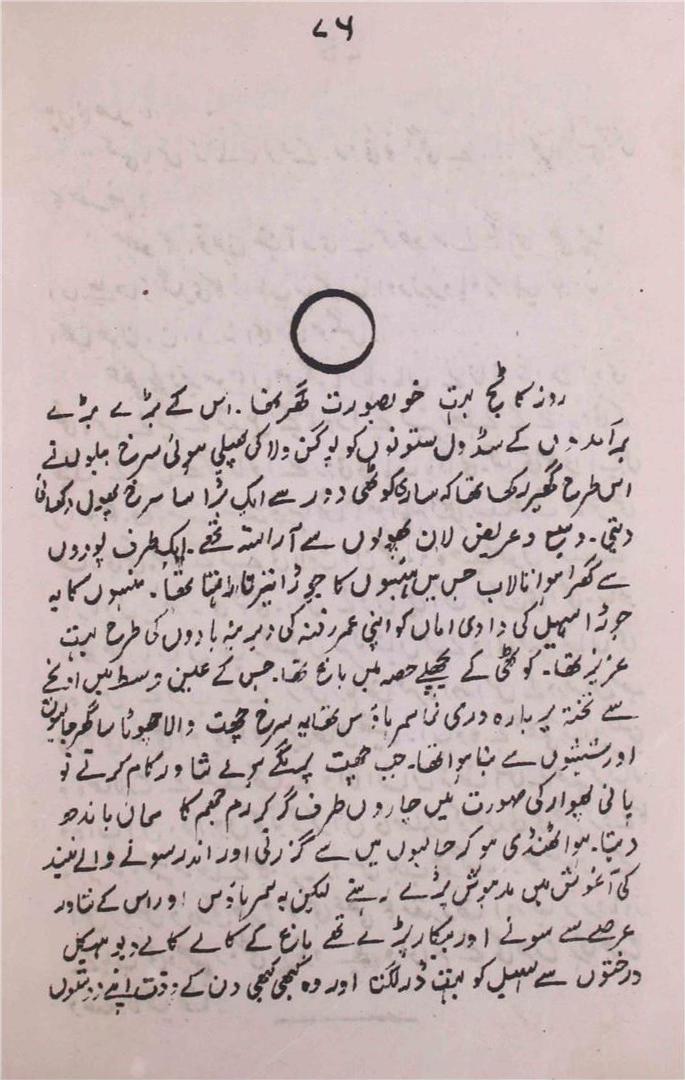 ۷۶
روز کاٹج بہت خوبصورت گھر تھا۔ اس کے بڑے بڑے
برآمدوں کے سڈول ستونوں کو بوگن ولا کی پھیلی ہوئی سرخ بیلوں نے
اس طرح گھیر رکھا تھا کہ ساری کوٹھی دور سے ایک بڑا سا سرخ پھول دکھائی
دیتی۔ وسیع و عریض لان پھولوں سے آراستہ تھے۔ ایک طرف پودوں
سے گھرا ہوا تالاب جس میں ہنسوں کا جوڑا تیرتا رہتا تھا۔ ہنسوں کا یہ
جوڑا سہیل کی دادی اماں کو اپنی عمر رفتہ کی دیرینہ یادوں کی طرح بہت
عزیز تھا۔ کوٹھی کے پچھلے حصہ میں باغ تھا۔ جس کے عین وسط میں اونچے
سے تختہ پر بارہ دری نما سمر ہاؤس تھا یہ سرخ چھت والا چھوٹا سا گھر جالیوں
اور شیشوں سے بنا ہوا تھا۔ جب چھت پر لگے ہوئے شاور کام کرتے تو
پانی پھوار کی صورت میں چاروں طرف گر کر رم جھم کا سماں باندھ
دیتا۔ ہوا ٹھنڈی ہو کر جالیوں میں سے گزرتی اور اندر سونے والے نیند
کی آغوش میں مدہوش پڑے رہتے لیکن یہ سمر ہاؤس اور اس کے شاور
عرصے سے سونے اور بیکار پڑے تھے باغ کے کالے کالے دیو ہیکل
درختوں سے سہیل کو بہت ڈر لگتا اور وہ کبھی کبھی دن کے وقت اپنے دوستوں